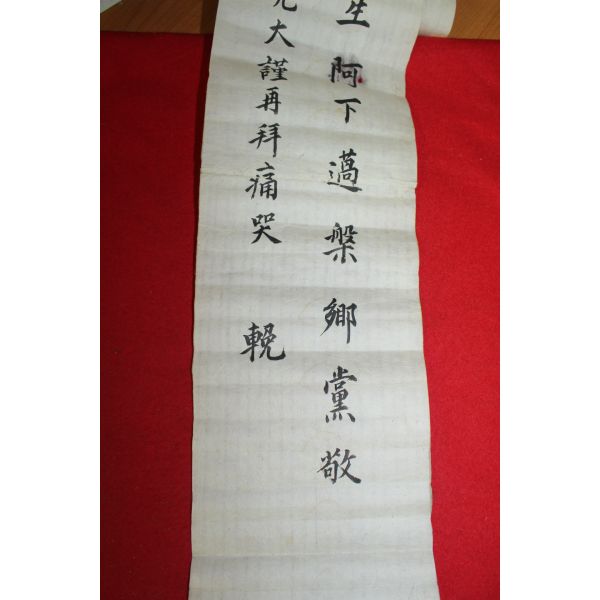 生阿下薖槃鄕黨敬
大謹再拜痛哭 輓